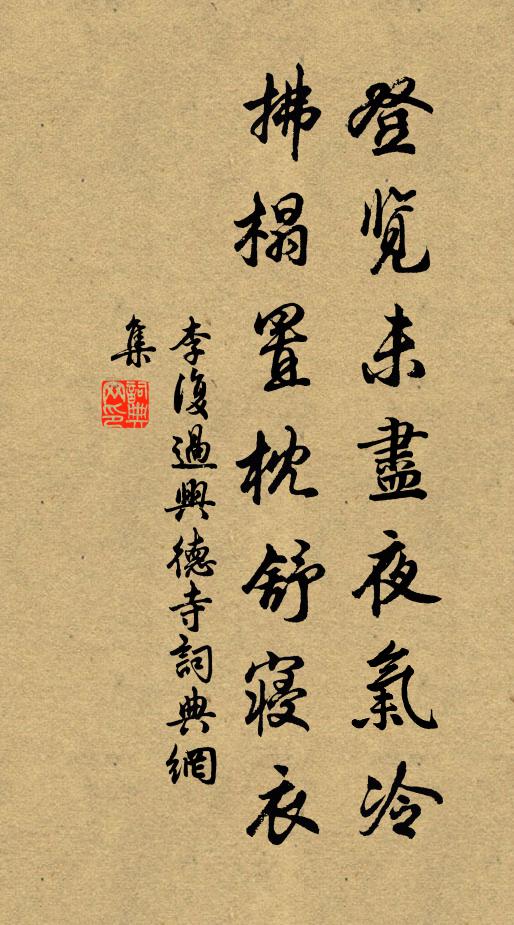 登览未盡夜氣冷
拂榻置枕舒寢衣
李復過興德寺詞典網
集
詞典
网印